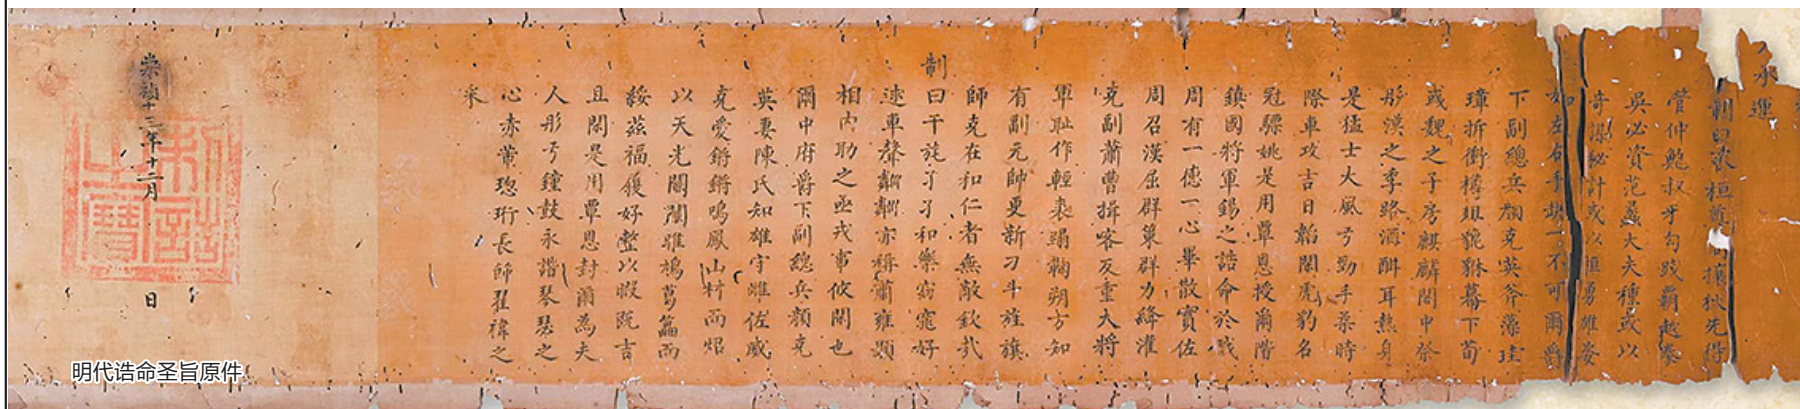 承運
制曰衣桓
管仲勉叔牙勾践霸越
吳必資范蠡大夫種或以
奇謀秘計或以
如左右手缺一不可爾爵
下副總兵顏克英斧藻珪
璋折衝樽俎貔貅幕下荀
或魏之子房麒麟閣中
彤漢之季路酒酣耳熱身
是猛士大風兮勁手柔時
際車攻吉日韜閑虎豹名
冠驃姚是用覃恩授爾階
鎮國將軍錫之誥命於戲
周有一德一心畢散實佐
周召漢屈群策群力絳灌
克副蕭曹揖客反重大將
軍耻作輕裘
有副元帥更新刁斗旌旗
師克在和仁者無敵欽哉
制
曰干旄孑孑和樂窈窕好
逑車聲轔轔亦稱肅雍顯
相內助之亟戎事攸關也
爾中府爵下副總兵顏克
英妻陳氏知雄守雌佐威
克愛鏘鏘鳴鳳山村而炤
以天光關關雎鳩
綏茲福履好整以暇既吉
且閑是用覃恩封爾為夫
人彤弓鐘鼓永諧琴瑟之
心赤芾璁珩長師翟褘之
采
崇禎十三年十二月 日
制誥之寶
明代诰命圣旨原件